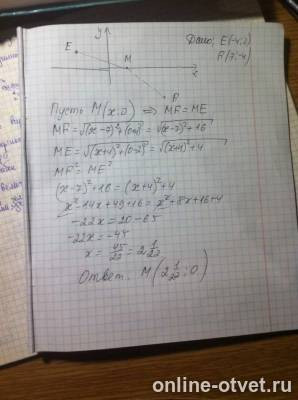 y
E
M
x
F
Дано; E(-4;2)
F(7;-4)
Пусть M(x;0) ⇒ MF = ME
MF = √(x-7)²+(0+4)² = √(x-7)²+16
ME = √(x+4)²+(0-2)² = √(x+4)²+4
MF² = ME²
(x-7)²+16 = (x+4)²+4
x²-14x+49+16 = x²+8x+16+4
-22x = 20-65
-22x = -45
x = 45/22 = 2 1/22
Ответ: M(2 1/22; 0)
online-otvet.ru